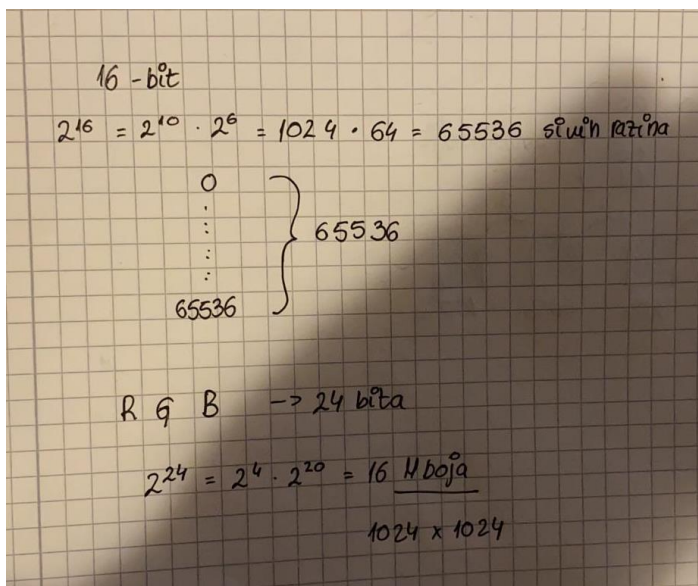 16 - bit
2¹⁶ = 2¹⁰ · 2⁶ = 1024 · 64 = 65536 sivih razina
0
65536
65536
R G B -> 24 bita
2²⁴ = 2⁴ · 2²⁰ = 16 Mboja
1024 x 1024